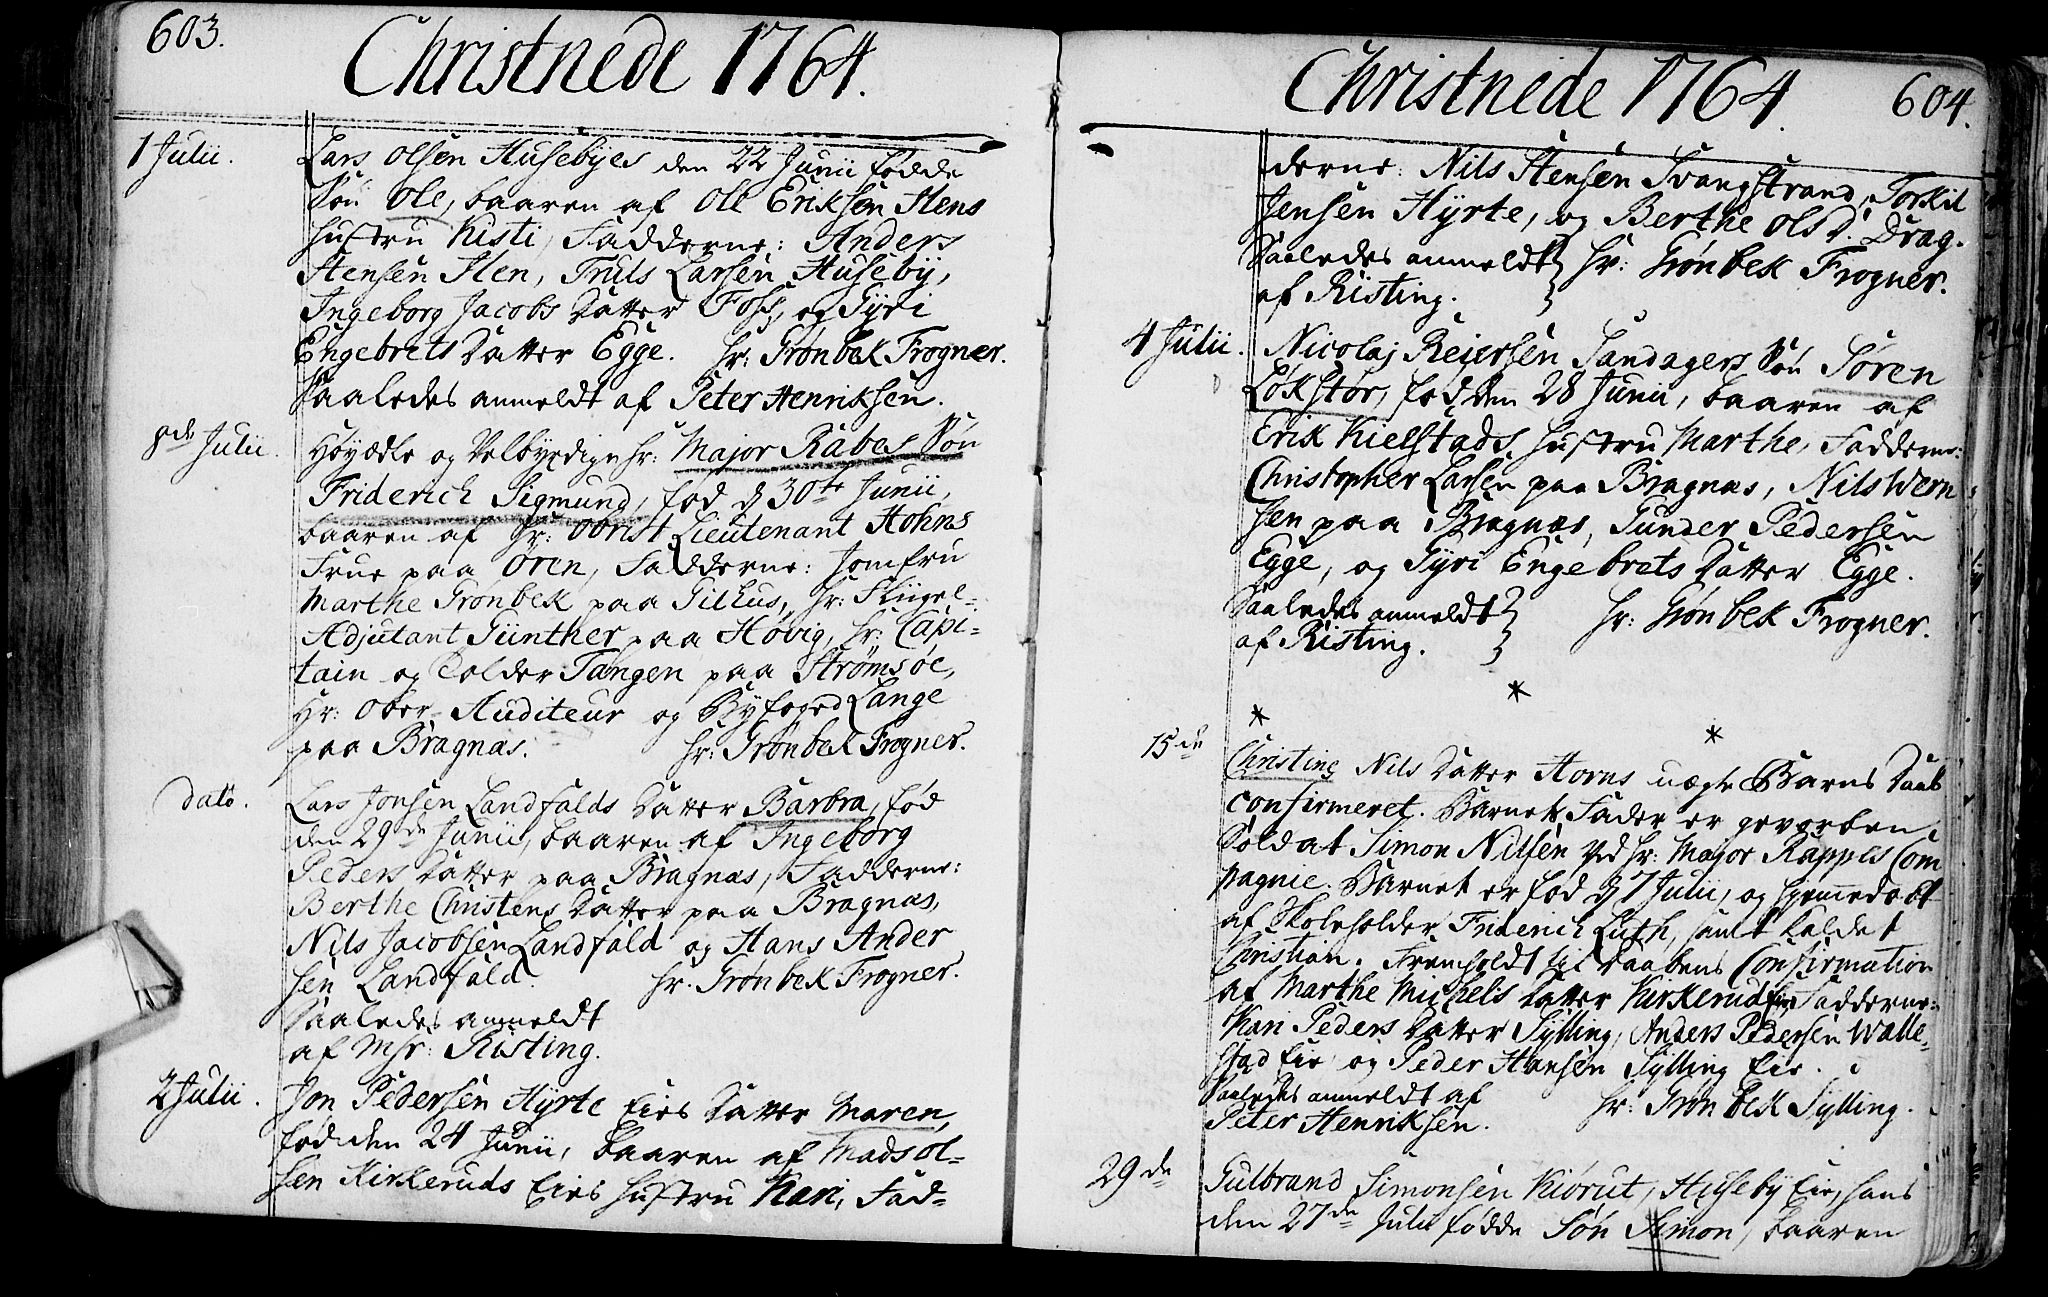 603.
Christnede 1764.
1 Julii.
Lars Olsen Husebyes den 22 Junii fødde
Søn Ole, baaren af Ole Eriksen Hens
Hustru Kisti, Fadderne: Anders
Stensen Hen, Truls Larsen Huseby,
Ingeborg Jacobs Datter Foss, og Gyri
Engebrets Datter Egge. Hr: Grønbek Frogner.
Saaledes anmeldt af Peter Henriksen.
8de Julii.
Høyædle og Velbyrdige Hr: Major Rabes Søn
Friderich Sigmund, fød d 30te Junii,
baaren af Hr: Obrist Lieutenant Hohns
Frue paa Øren, Fadderne: Jomfru
Marthe Grønbek paa Gilhus, Hr: Flügel-
Adjutant Günther paa Høvig, Hr: Capi-
tain og Tolder Tangen paa Strømsøe,
Hr: Ober-Auditeur og Byfoged Lange
paa Bragnæs. Hr: Grønbek Frogner.
Dato.
Lars Jonsen Landfalds Datter Barbra, fød
den 29de Junii, baaren af Ingeborg
Peders Datter paa Bragnæs, Fadderne:
Berthe Christens Datter paa Bragnæs,
Nils Jacobsen Landfald og Hans Ander
sen Landfald. Hr. Grønbek Frogner.
Saaledes anmeldt
af Msr: Risting.
2 Julii.
Jon Pedersen Hyrte Eies Datter Maren,
fød den 24 Junii, baaren af Mads Ol-
sen Kirkeruds Eies Hustru Kari, Fad-
Christnede 1764.
604.
derne: Nils Stensen Svangstrand, Torkil
Jensen Hyrte, og Berthe Ols D. Drag.
Saaledes anmeldt Hr: Grønbek Frogner.
af Risting.
4 Julii.
Nicolaj Reiersen Sandagers Søn Søren
Løkstør, fød den 28 Junii, baaren af
Erik Kielstads Hustru Marthe, Fadderne:
Christopher Larsen paa Bragnæs, Nils Wern
sen paa Bragnæs, Gunder Pedersen
Egge, og Gyri Engebrets Datter Egge.
Saaledes anmeldt Hr: Grønbek Frogner.
af Risting.
* * *
15de
Christine Nils Datter Horns uægte Barns Daab
confirmeret. Barnets Fader er gevorben
Soldat Simon Nilsen ved Hr: Major Rappes Com
pagnie. Barnet er fød d 7 Julii, og hjemmedøbt
af Skoleholder Friderich Luth, samt kaldet
Christian. Fremholdt til Daabens Confirmation
af Marthe Michels Datter Kirkerud Eie Fadderne:
Kari Peders Datter Sylling, Anders Pedersen Walle-
stad Eie og Peder Hansen Sylling Eie.
Saaledes anmeldt af Hr: Grønbek Sylling.
Peter Henriksen.
29de
Gulbrand Simonsen Kiørut, Huseby Eie, hans
den 27de Julii fødde Søn Simon, baaren